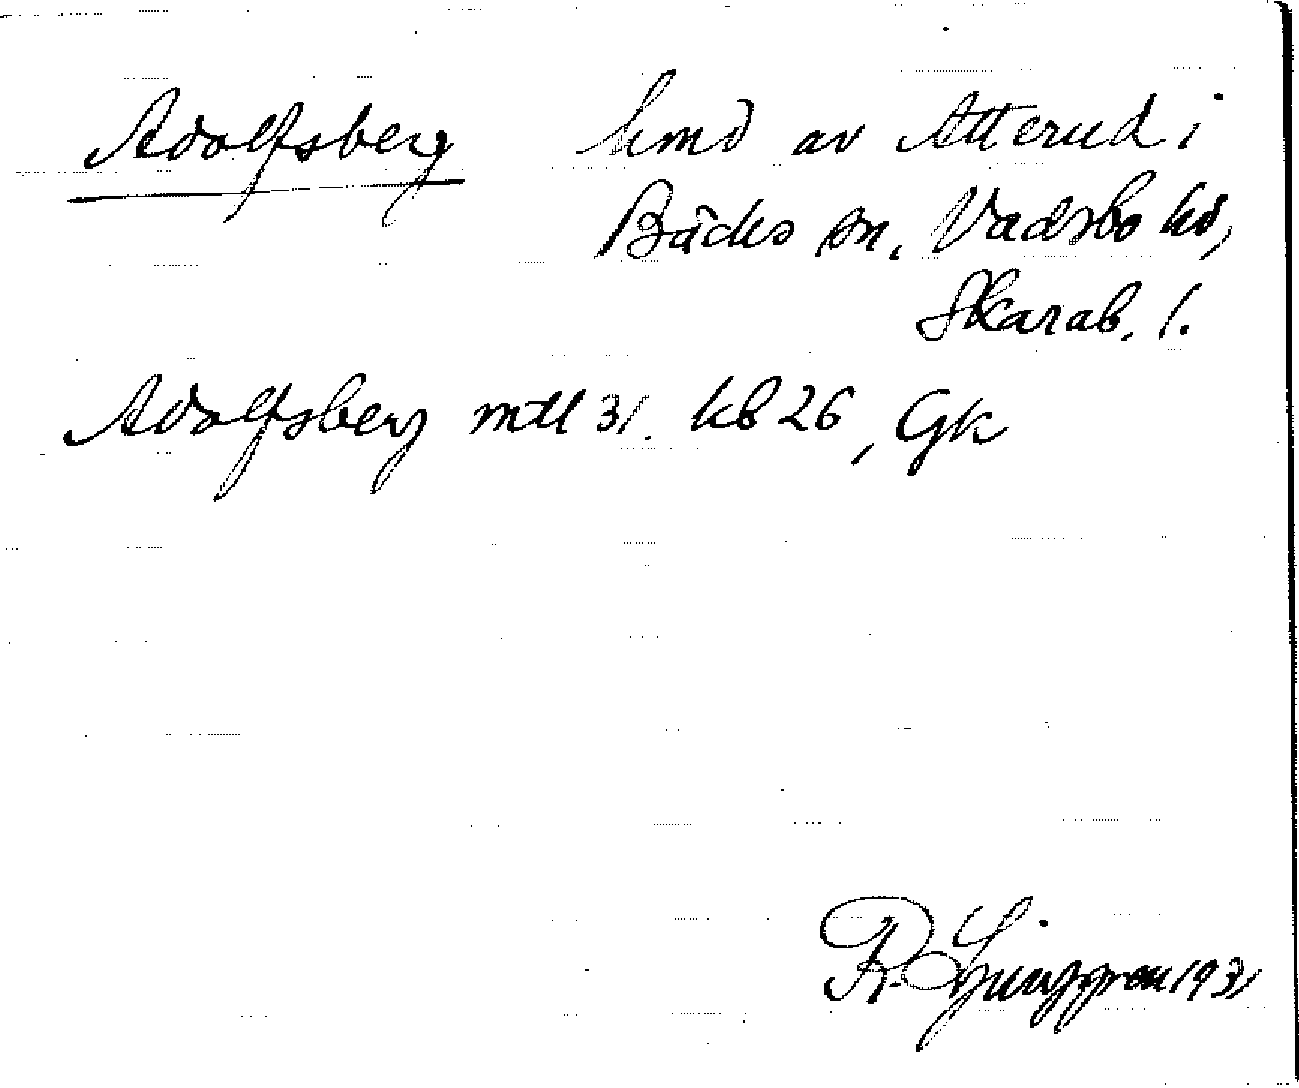 Adolfsberg hmd av Atterud i
Bäcks sn, Vadsbo hd,
Skarab. l.
Adolfsberg mtl 31. kb 26, Gk
R. Ljunggren 1931